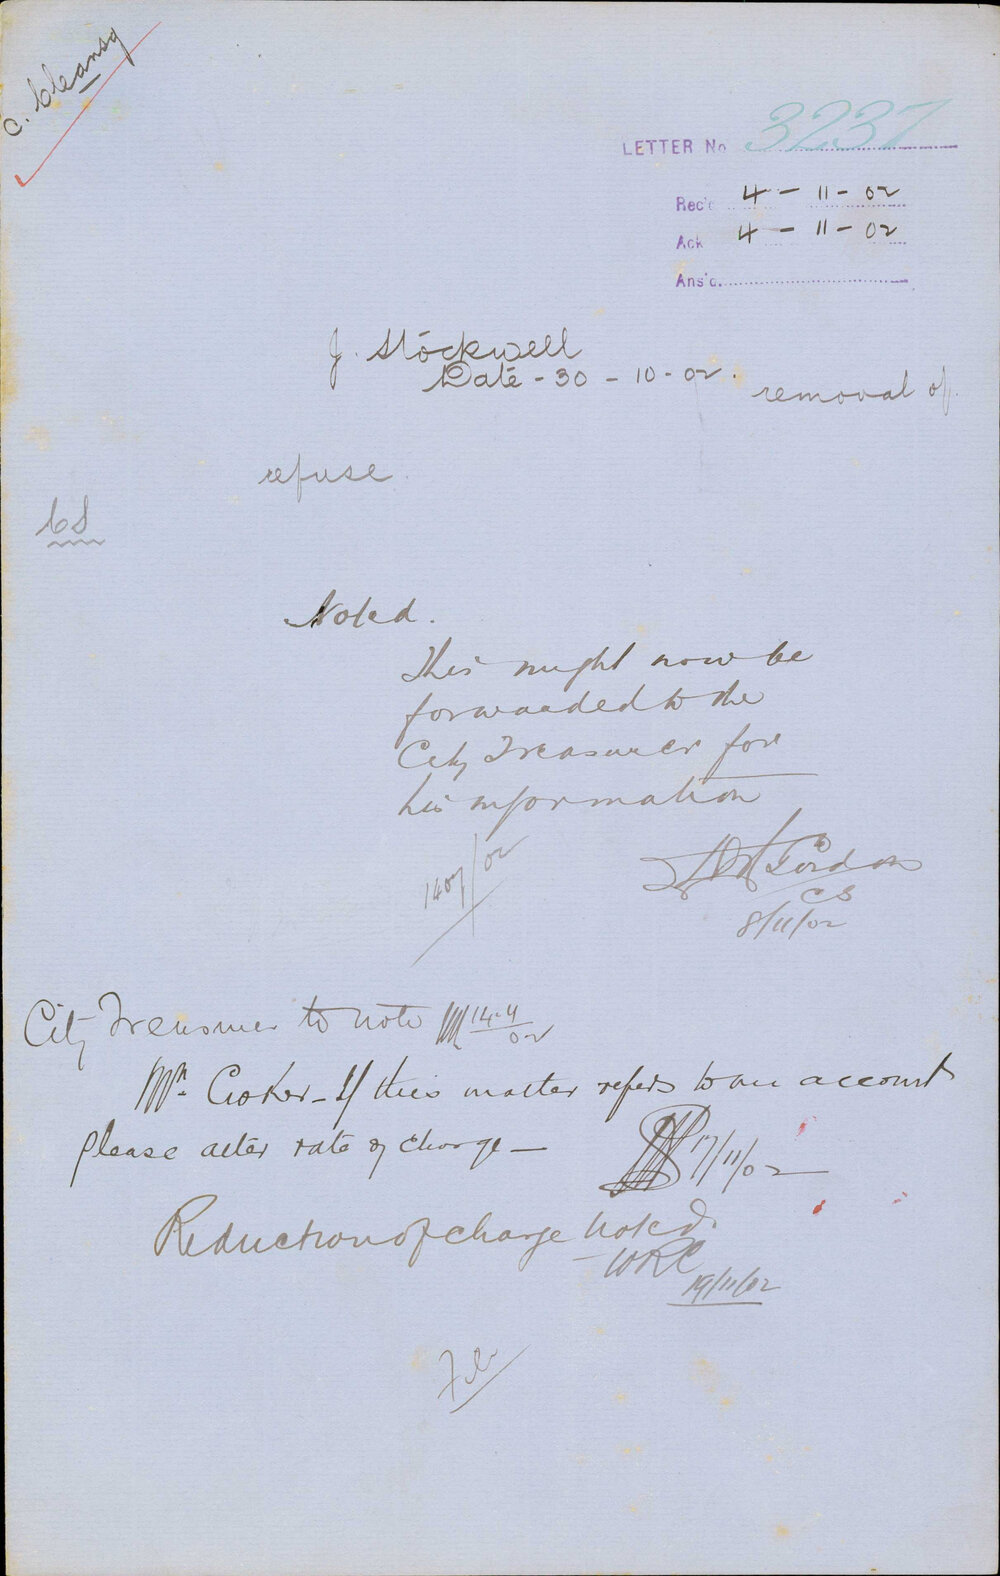 C. Cleansg
LETTER No 3237
Rec'd 4-11-02
Ack 4-11-02
Ans'd.
J. Stockwell
Date - 30 - 10 - 02.
removal of
refuse
CS
Noted.
This might now be
forwarded to the
City Treasurer for
his information
Gordon
CS
8/11/02
1407/02
City Treasurer to note 14-11/02
Mr. Croker - If this matter refers to an account
please alter rate of charge -
17/11/02
Reduction of charge noted.
- WRC
19/11/02
File